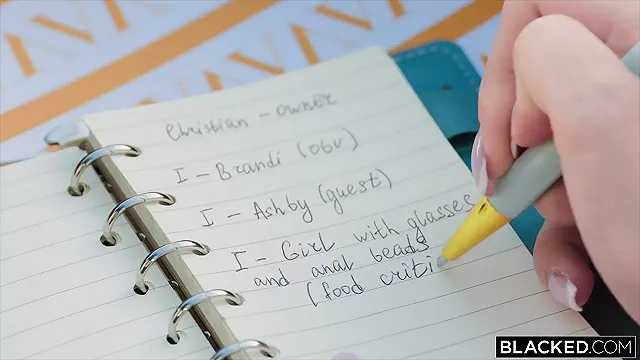 Christian - owner
I - Brandi (obv)
I - Ashby (guest)
I - Girl with glasses
and anal beads
(food criti
BLACKED.COM